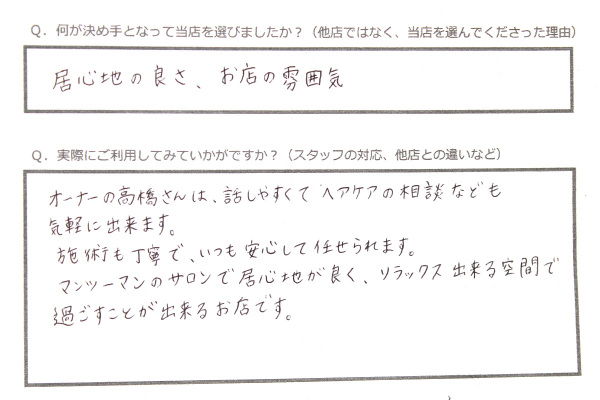 Q．何が決め手となって当店を選びましたか？（他店ではなく、当店を選んでくださった理由）
居心地の良さ、お店の雰囲気
Q．実際にご利用してみていかがですか？（スタッフの対応、他店との違いなど）
オーナーの高橋さんは、話しやすくてヘアケアの相談なども
気軽に出来ます。
施術も丁寧で、いつも安心して任せられます。
マンツーマンのサロンで居心地が良く、リラックス出来る空間で
過ごすことが出来るお店です。